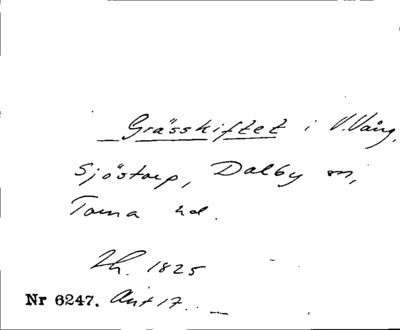 Grässkiftet i V. Vång,
Sjöstorp, Dalby sn,
Torna hd.
1825
Nr 6247.